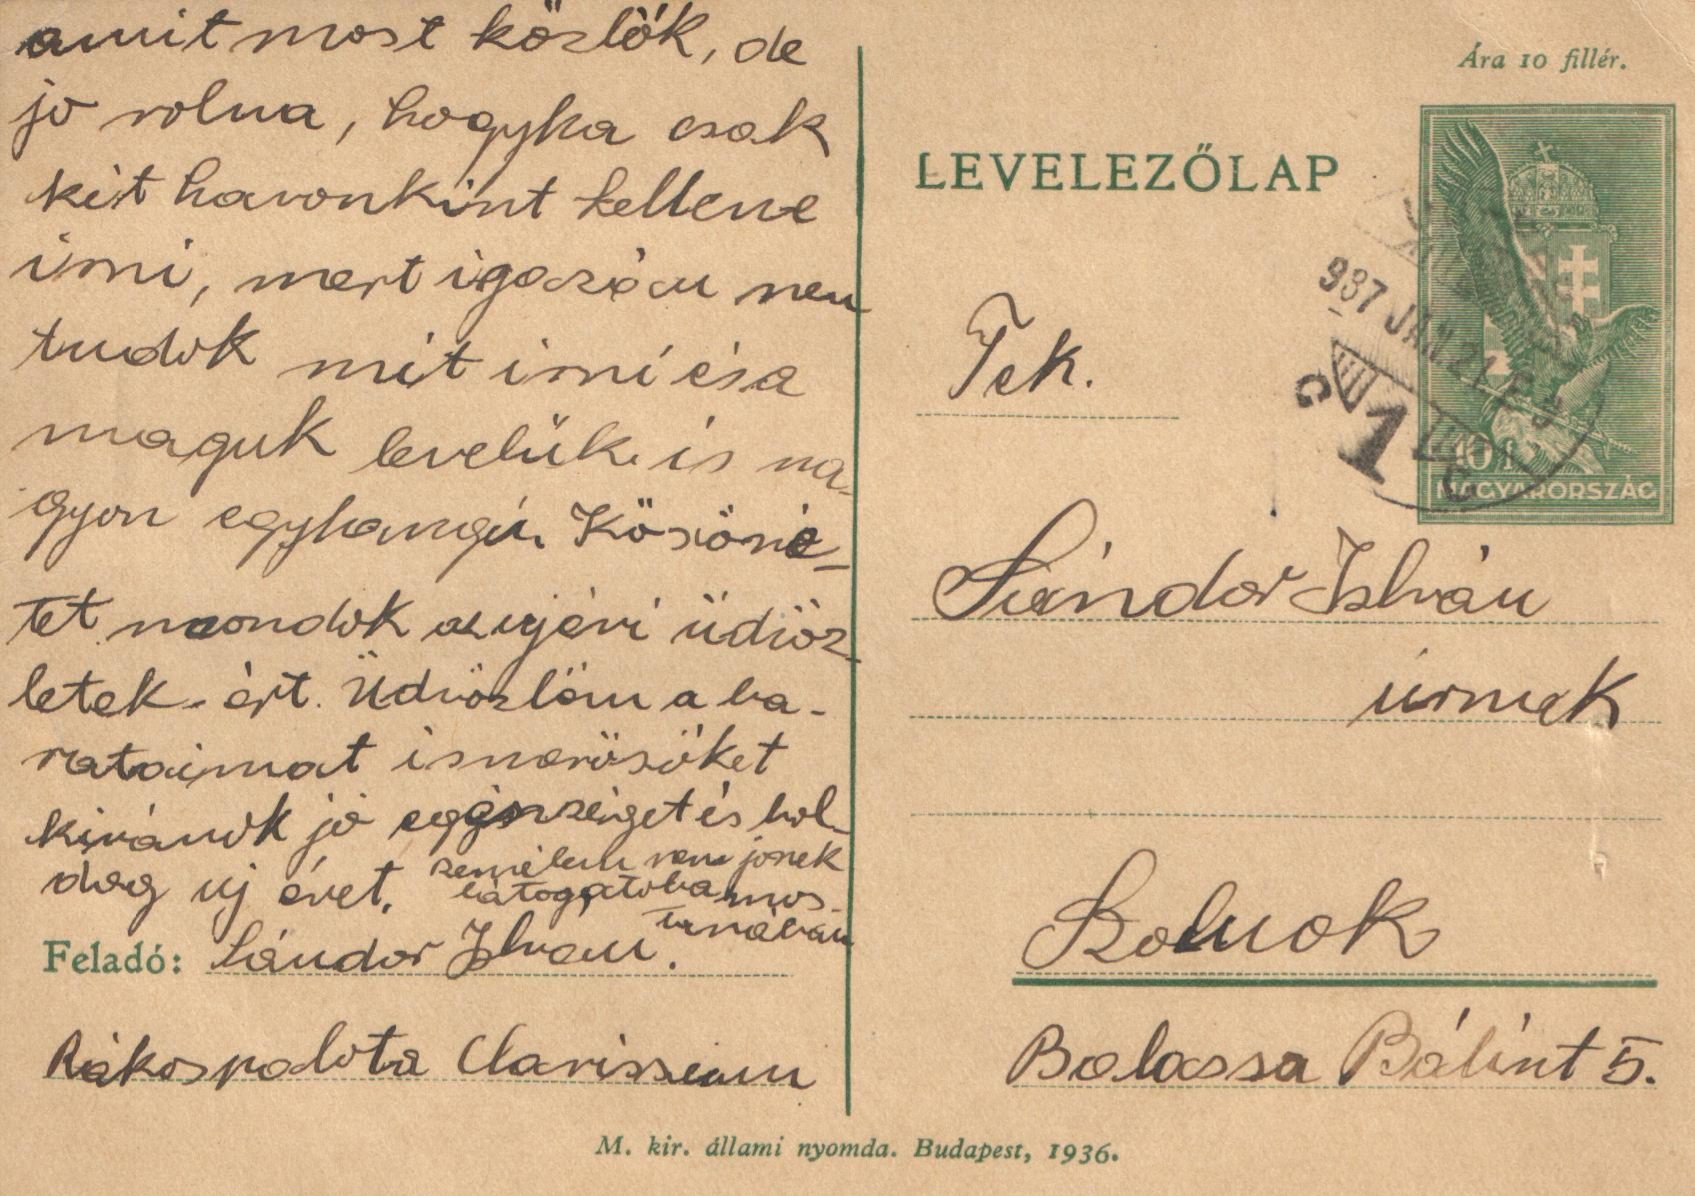 amit most közlök, de
jo volna, hogyha csak
két havonkint kellene
irni, mert igazán nem
tudok mit irni és a
maguk levelük is na-
gyon egyhangú. Köszöne-
tet mondok az ujévi üdvöz-
letek-ért. Üdvözlöm a ba-
rataimat ismerösöket
kivánok jó egészséget és bol-
dog uj évet.
nem jönek
látogatoba mos-
tanában
Feladó: Sándor István.
Rákospalota Clarisseum
Ára 10 fillér.
LEVELEZŐLAP
937 JAN. 21
1
10 f
MAGYARORSZÁG
Tek.
Sándor István
úrnak
Szolnok
Balassa Bálint 5.
M. kir. állami nyomda. Budapest, 1936.